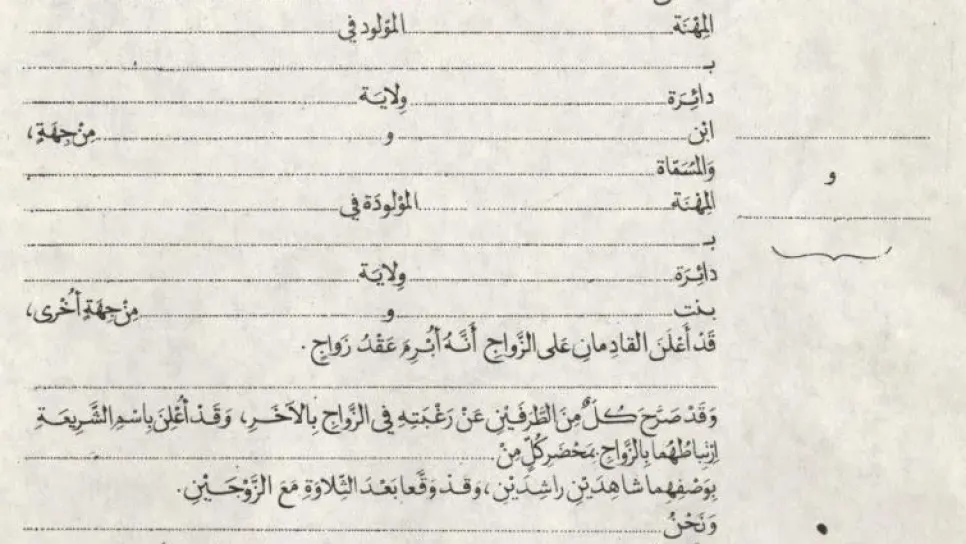 المِهْنَة ........ المَوْلود في ........
بـ ........
دائِرَة ........ وِلايَة ........
ابْن ........ و ........ مِنْ جِهَةٍ،
وَالمُسَمّاة ........
المِهْنَة ........ المَوْلودَة في ........
بـ ........
دائِرَة ........ وِلايَة ........
بنت ........ و ........ مِنْ جِهَةٍ أُخْرى،
قَدْ أَعْلَنَ القادِمانِ عَلى الزَّواجِ أَنَّهُ أُبْرِمَ عَقْدُ زَواجٍ .
وَقَدْ صَرَّحَ كُلٌّ مِنَ الطَّرَفَيْنِ عَنْ رَغْبَتِهِ في الزَّواجِ بِالآخَرِ، وَقَدْ أُعْلِنَ بِاسْمِ الشَّريعَةِ
اِرْتِباطُهُما بِالزَّواجِ بِمَحْضَرِ كُلٍّ مِنْ ........
بِوَصْفِهِما شاهِدَيْنِ راشِدَيْنِ، وَقَدْ وَقَّعا بَعْدَ التِّلاوَةِ مَعَ الزَّوْجَيْنِ.
وَنَحْنُ ........
و